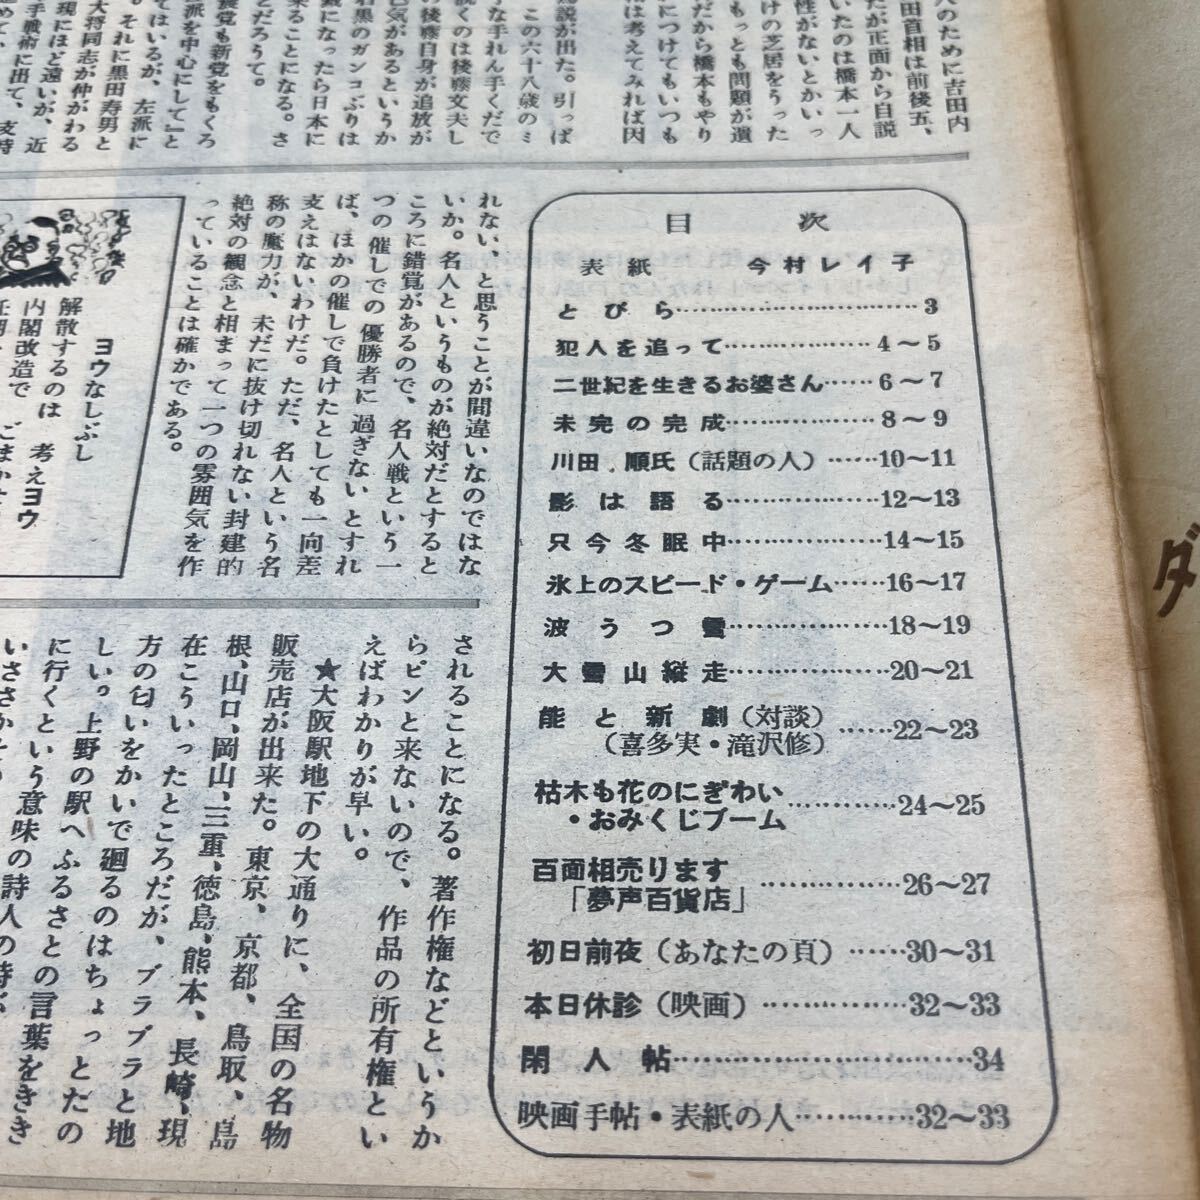 人のために吉田内
田首相は前後五、
たが正面から自説
いたのは橋本一人
性がないとかいっ
けの芝居をうった
もっとも問題が遺
だから橋本もやり
につけてもいつも
は考えてみれば因
説が出た。引っぱ
この六十八歳のミ
な手れん手くだで
説くのは後藤文夫し
の後藤自身が追放が
色気があるというか
石黒のガンコぶりは
職になったら日本に
来ることになる。さ
だろうて。
農党も新党をもくろ
派を中心にして』と
てはいるが、左派に
。それに黒田寿男と
大将同志が仲がわる
現にほど遠いが、近
手戦術に出て、支持
れない、と思うことが間違いなのではな
いか。名人というものが絶対だとすると
ころに錯覚があるので、名人戦という一
つの催しでの優勝者に過ぎないとすれ
ば、ほかの催しで負けたとしても一向差
支えはないわけだ。ただ、名人という名
称の魔力が、未だに抜け切れない封建的
絶対の観念と相まって一つの雰囲気を作
っていることは確かである。
ヨウなしぶし
解散するのは 考えヨウ
内閣改造で
目次
表紙 今村レイ子
とびら……………………3
犯人を追って……………4～5
二世紀を生きるお婆さん……6～7
未完の完成……………8～9
川田 順氏（話題の人）……10～11
影は語る……………12～13
只今冬眠中……………14～15
氷上のスピード・ゲーム……16～17
波うつ雪……………18～19
大雪山縦走……………20～21
能と新劇（対談）
（喜多実・滝沢修）……22～23
枯木も花のにぎわい
・おみくじブーム…………24～25
百面相売ります
「夢声百貨店」……………26～27
初日前夜（あなたの頁）……30～31
本日休診（映画）……………32～33
閑人帖……………………………34
映画手帖・表紙の人…………32～33
されることになる。著作権などというか
らピンと来ないので、作品の所有権とい
えばわかりが早い。
★大阪駅地下の大通りに、全国の名物
販売店が出来た。東京、京都、鳥取、島
根、山口、岡山、三重、徳島、熊本、長崎、現
在こういったところだが、ブラブラと地
方の匂いをかいで廻るのはちょっとたの
しい。上野の駅へふるさとの言葉をきき
に行くという意味の詩人の詩が
ダ